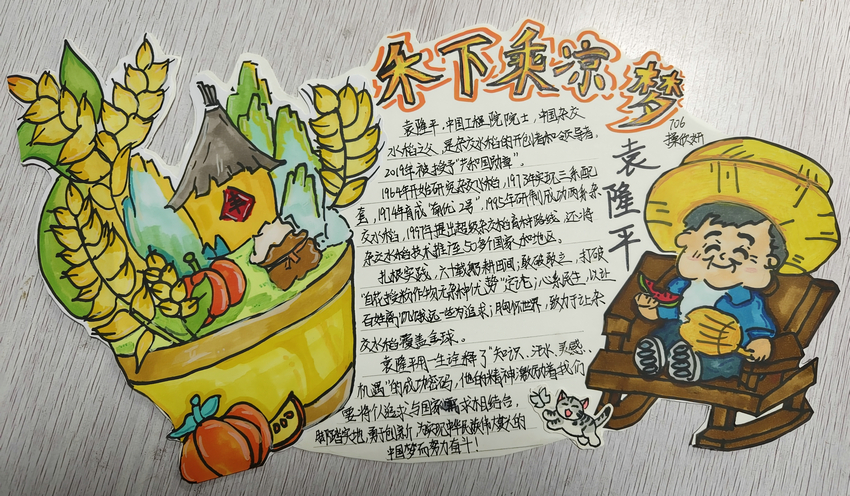 禾下乘凉梦
706
袁隆平
袁隆平，中国工程院院士，中国杂交
水稻之父，是杂交水稻的开创者和领导者，
2019年被授予"共和国勋章"。
1964年开始研究杂交水稻，1973年实现三系配
套，1974年育成"南优2号"，1995年研制成功两系杂
交水稻，1997年提出超级杂交稻育种路线，还将
杂交水稻技术推广至50多个国家和地区。
扎根实践，六十载躬耕田间；敢破敢立，打破
"自花授粉作物无杂种优势"定论；心系民生，以让
百姓离饥饿远一些为追求；胸怀世界，致力于让杂
交水稻覆盖全球。
袁隆平用一生诠释了"知识、汗水、灵感、
机遇"的成功密码，他的精神激励着我们
要将个人追求与国家需求相结合，
脚踏实地，勇于创新，为实现中华民族伟大复兴的
中国梦而努力奋斗！